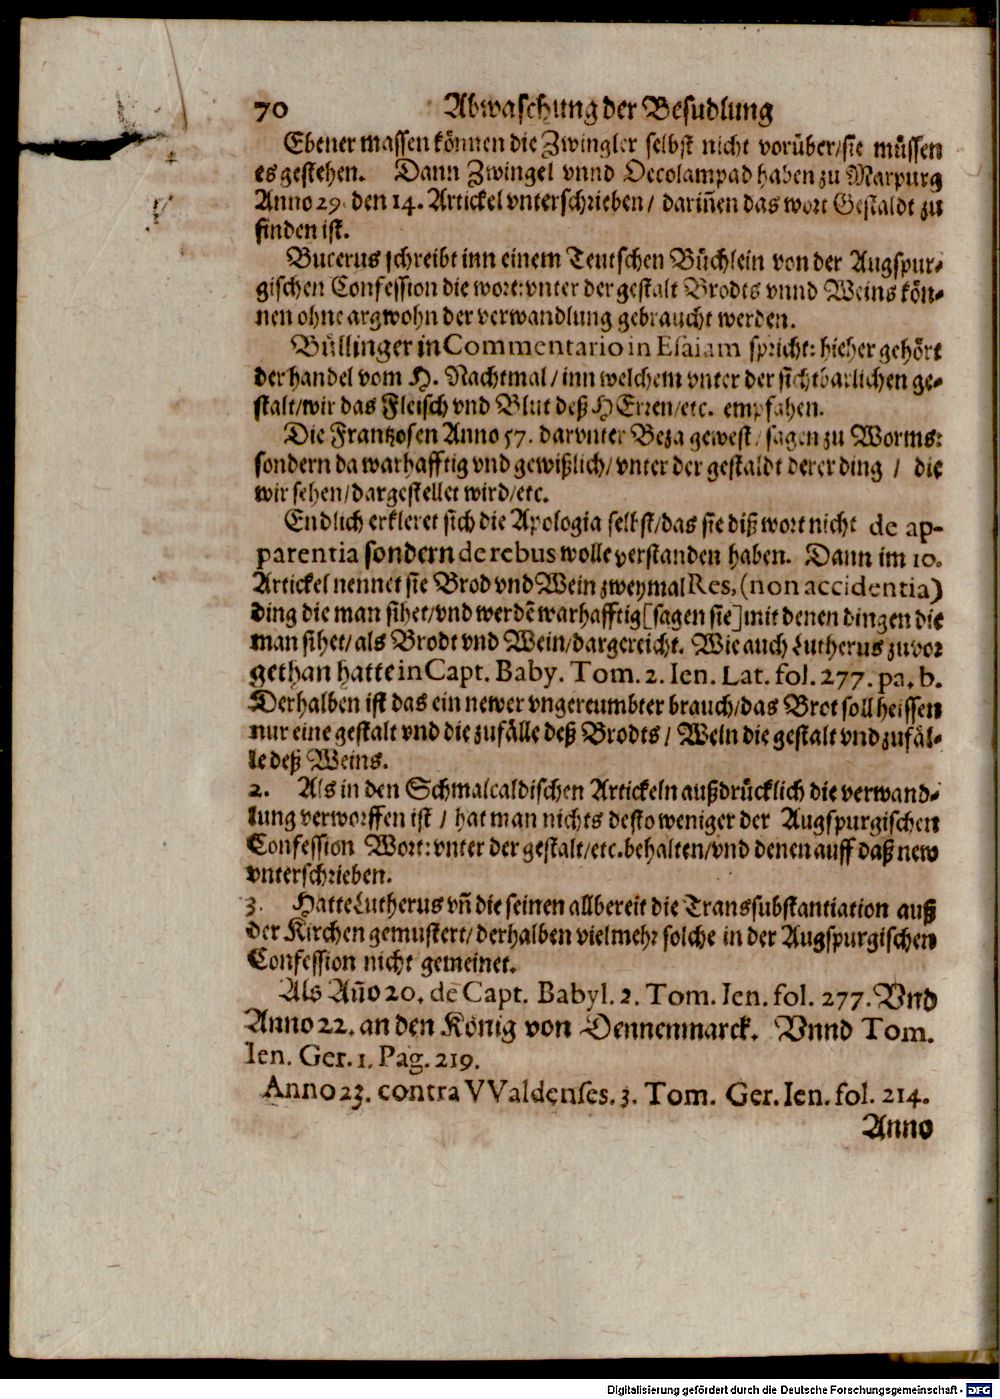 70 Abwaschung der Besudlung
Ebener massen können die Zwingler selbst nicht vorüber/sie müssen
es gestehen. Dann Zwingel vnnd Oecolampad haben zu Marpurg
Anno 29. den 14. Artickel vnterschrieben/ dariñen das wort Gestaldt zu
finden ist.
Bucerus schreibt inn einem Teutschen Büchlein von der Augspur-
gischen Confession die wort: vnter der gestalt Brodts vnnd Weins kön-
nen ohne argwohn der verwandlung gebraucht werden.
Büllinger in Commentario in Esaiam spricht: hieher gehört
der handel vom H. Nachtmal/ inn welchem vnter der sichtbarlichen ge-
stalt/wir das Fleisch vnd Blut deß HErren/etc. empfahen.
Die Frantzosen Anno 57. darvnter Beza gewest/ sagen zu Worms:
sondern da warhafftig vnd gewißlich/ vnter der gestaldt derer ding / die
wir sehen/dargestellet wird/etc.
Endlich erkleret sich die Apologia selbst/das sie diß wort nicht de ap-
parentia sondern de rebus wolle verstanden haben. Dann im 10.
Artickel nennet sie Brod vnd Wein zweymal Res, (non accidentia)
ding die man sihet/vnd werdẽ warhafftig [sagen sie] mit denen dingen die
man sihet/als Brodt vnd Wein/dargereicht. Wie auch Lutherus zuvor
gethan hatte in Capt. Baby. Tom. 2. Ien. Lat. fol. 277. pa. b.
Derhalben ist das ein newer vngereumbter brauch/das Brot soll heissen
nur eine gestalt vnd die zufälle deß Brodts/ Wein die gestalt vnd zufäl-
le deß Weins.
2. Als in den Schmalcaldischen Artickeln außdrücklich die verwand-
lung verworffen ist / hat man nichts desto weniger der Augspurgischen
Confession Wort: vnter der gestalt/etc. behalten/vnd denen auff daß new
vnterschrieben.
3. Hatte Lutherus vñ die seinen allbereit die Transsubstantiation auß
der Kirchen gemustert/ derhalben vielmehr solche in der Augspurgischen
Confession nicht gemeinet.
Als Año 20. de Capt. Babyl. 2. Tom. Ien. fol. 277. Vnd
Anno 22. an den König von Dennenmarck. Vnnd Tom.
Ien. Ger. 1. Pag. 219.
Anno 23. contra VValdenses. 3. Tom. Ger. Ien. fol. 214.
Anno
Digitalisierung gefördert durch die Deutsche Forschungsgemeinschaft - DFG